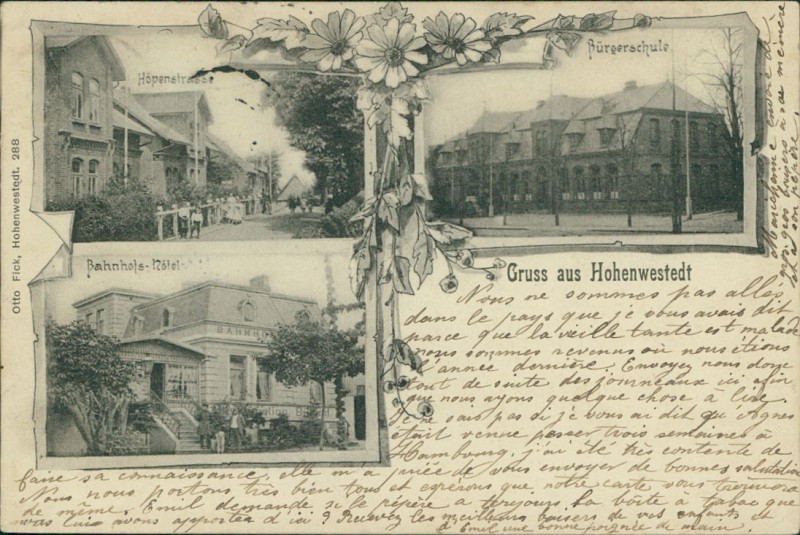 Höpenstrasse
Bürgerschule
Bahnhofs-Hôtel-
BAHNHO
Otto Fick, Hohenwestedt. 288
Gruss aus Hohenwestedt
Nous ne sommes pas allés
dans le pays que je vous avais dit
parce que la vieille tante est malade
nous sommes revenus où nous étions
l'année dernière. Envoyez nous donc
tout de suite des journeaux ici afin
que nous ayons quelque chose à lire.
Je ne sais pas si je vous ai dit qu'Agnes
était venue passer trois semaines à
Hambourg, j'ai été très contente de
faire sa connaissance, elle m'a priée de vous envoyer de bonnes salutations
Nous nous portons très bien tous et espérons que notre carte vous trouvera
de même. Emil demande si le pépère a toujours la boîte à tabac que
nous lui avons apportée d'ici? Recevez les meilleurs baisers de vos enfants et
d'Emil une bonne poignée de main.
Marianne envoie de
gros baisers à sa mémère
et à son pépère.